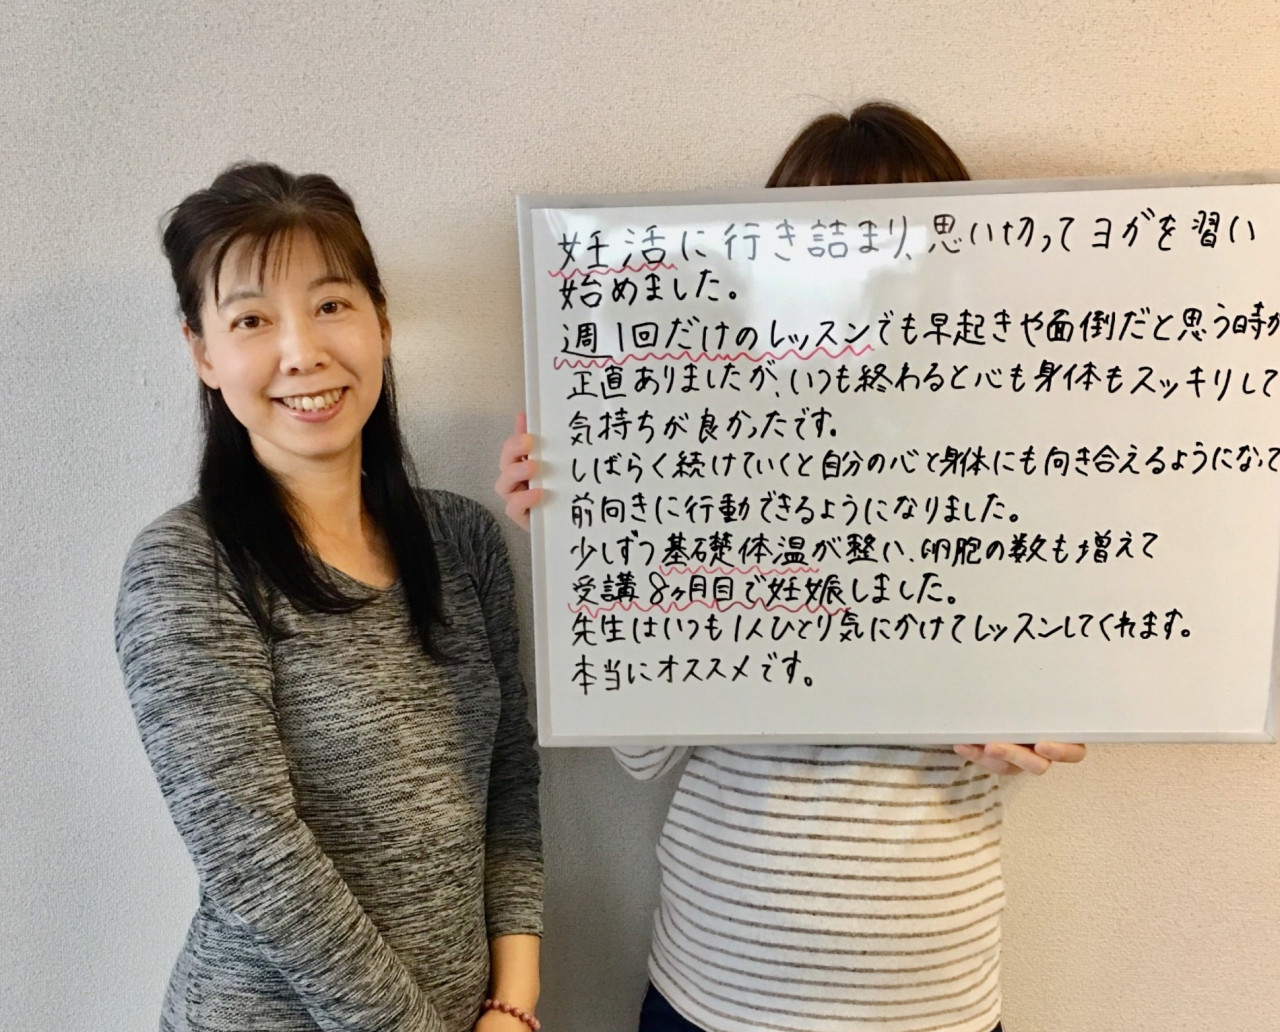 妊活に行き詰まり、思い切ってヨガを習い
始めました。
週1回だけのレッスンでも早起きや面倒だと思う時が
正直ありましたが、いつも終わると心も身体もスッキリして
気持ちが良かったです。
しばらく続けていくと自分の心と身体にも向き合えるようになって
前向きに行動できるようになりました。
少しずつ基礎体温が整い、卵胞の数も増えて
受講8ヶ月目で妊娠しました。
先生はいつも1人ひとり気にかけてレッスンしてくれます。
本当にオススメです。